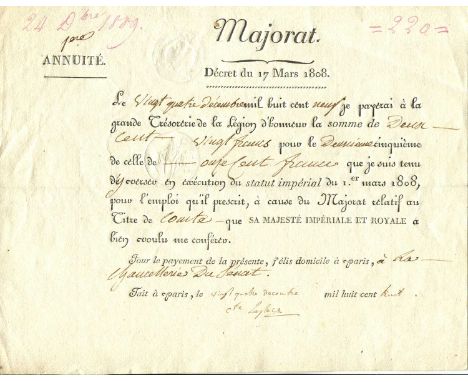 24 Xbre 1809.
=220=
Majorat.
ANNUITÉ.
Décret du 17 Mars 1808.
Le vingt quatre décembre mil huit cent neuf je payerai à la
grande Trésorerie de la Légion d'honneur la somme de Deux
Cent vingt francs pour le Deuxieme cinquième
de celle de onze Cent francs que je suis tenu
d'y verser en exécution du statut impérial du 1.er mars 1808,
pour l'emploi qu'il prescrit, à cause du Majorat relatif au
Titre de Comte que SA MAJESTÉ IMPÉRIALE ET ROYALE a
bien voulu me conférer.
Pour le payement de la présente, j'élis domicile à Paris, à La
Chancellerie Du Senat.
Fait à Paris, le vingt quatre decembre mil huit cent huit